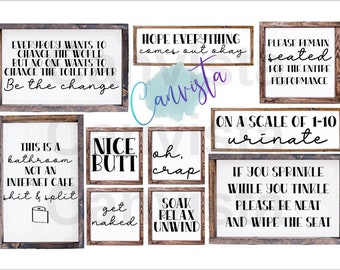 EVERYBODY WANTS TO
CHANGE THE WORLD
BUT NO ONE WANTS TO
CHANGE THE TOILET PAPER
Be the change
HOPE EVERYTHING
comes out okay
PLEASE REMAIN
seated
FOR THE ENTIRE
PERFORMANCE
Canvista
THIS IS A
bathroom
NOT AN
INTERNET CAFE
shit & split
NICE
BUTT
oh,
crap
ON A SCALE OF 1-10
urinate
get
naked
SOAK
RELAX
UNWIND
IF YOU SPRINKLE
WHILE YOU TINKLE
PLEASE BE NEAT
AND WIPE THE SEAT